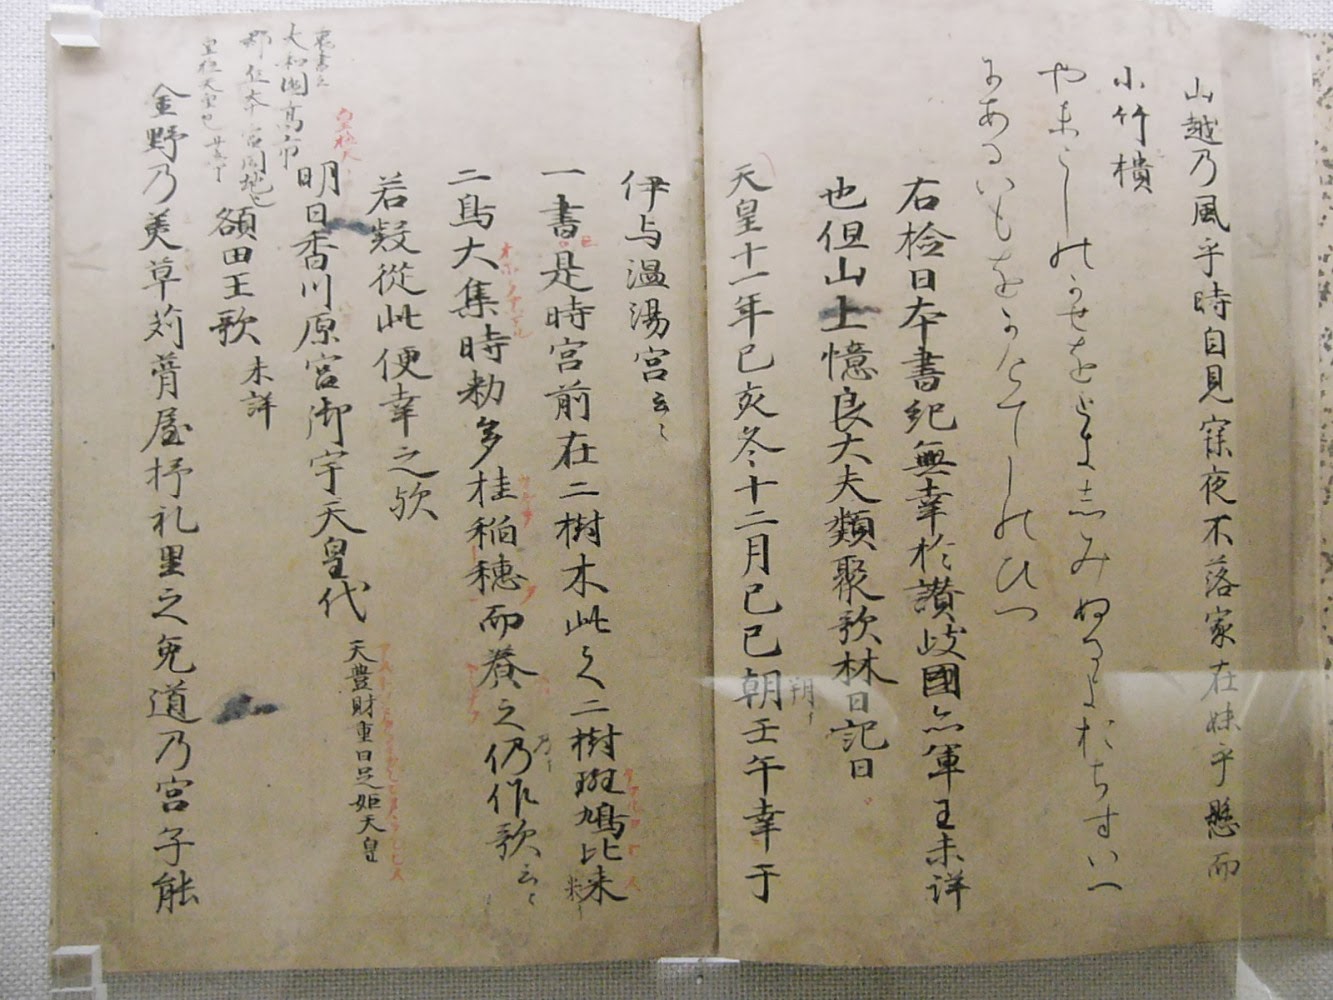 山越乃風乎時自見寐夜不落家在妹乎懸而
小竹櫃
やまこしのかせをときしみぬるよおちすいへ
にあるいもをかけてしのひつ
右検日本書紀無幸於讃岐國亦軍王未詳
也但山上憶良大夫類聚歌林日記曰
天皇十一年己亥冬十二月己巳朝壬午幸于
朔
伊与温湯宮云々
一書是時宮前在二樹木此之二樹斑鳩比来
二鳥大集時勅多桂稲穂而養之仍作歌云々
乃
若疑従此便幸之歟
明日香川原宮御宇天皇代 天豊財重日足姫天皇
皇極天
額田王歌 未詳
大和国高市
郡
金野乃美草苅葺屋杼礼里之兎道乃宮子能